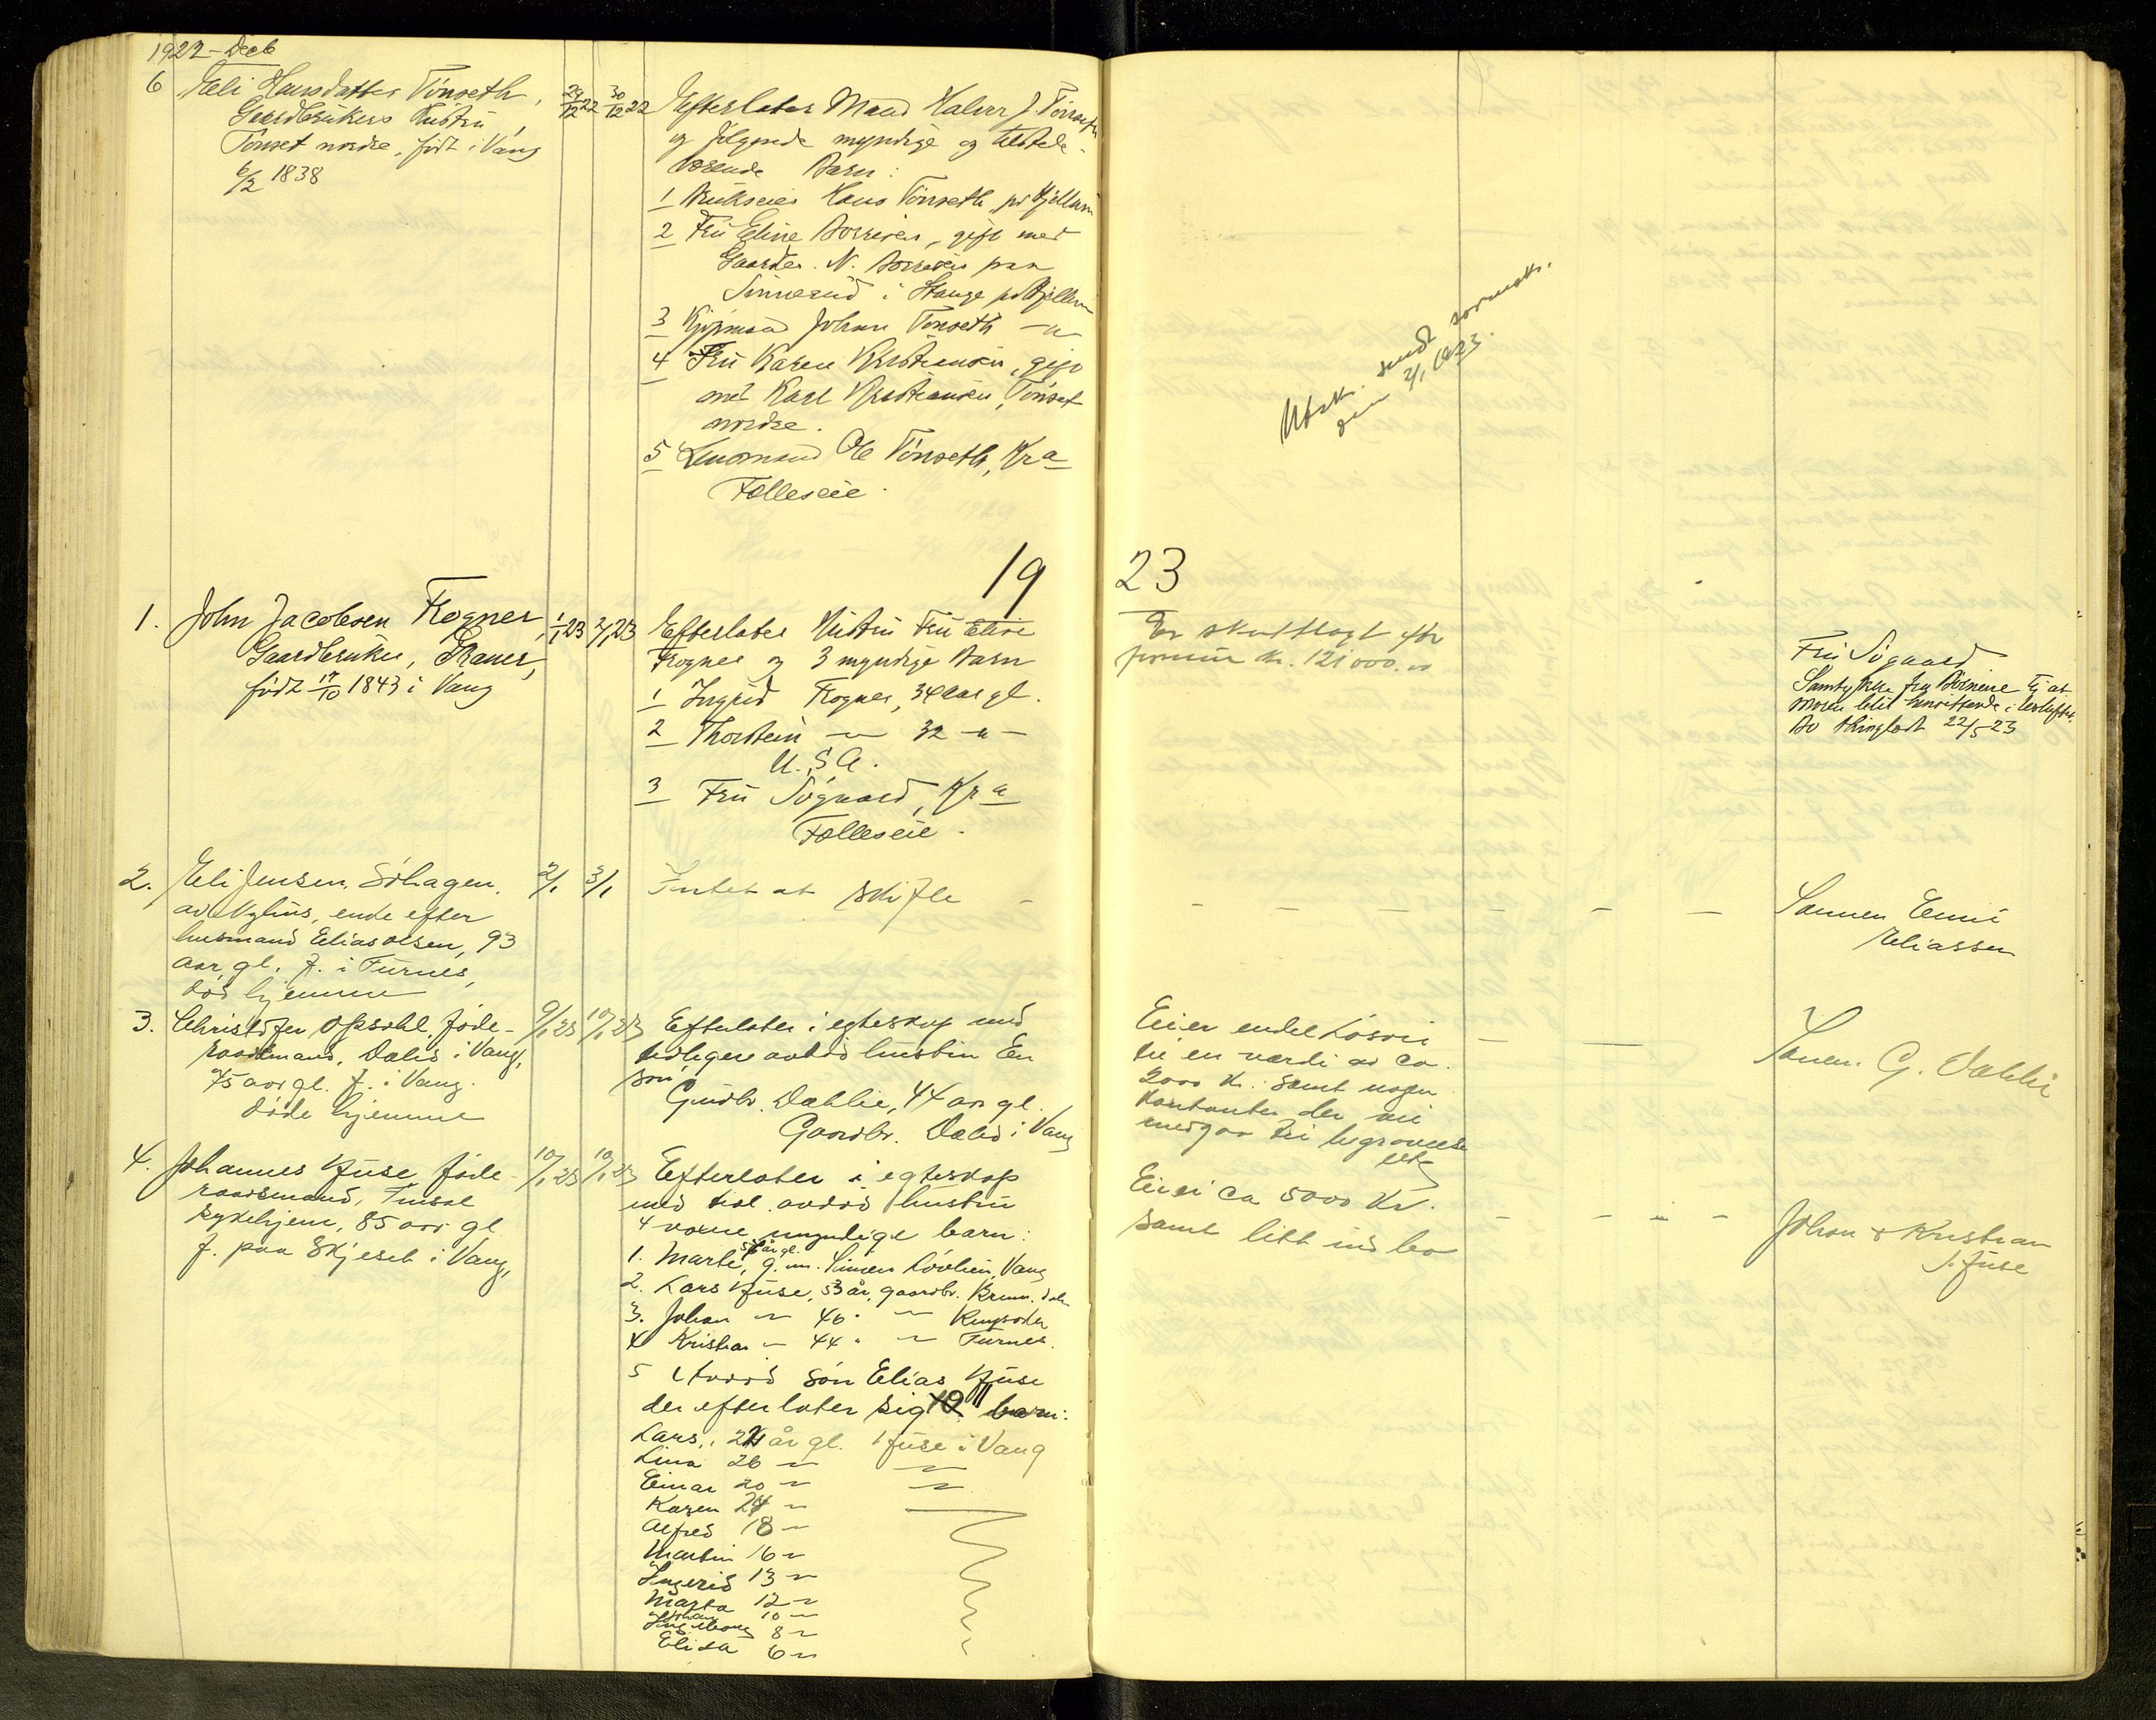 1922 - Decb
6 Eli Hansdatter Tönseth,
Gaardbrukers Hustru,
Tönset nordre, född i Vang
6/2 1838
29/12 22 30/12 22
Efterlater Mand Halvor J. Tönseth
og følgende myndige og tilstede-
værende Barn:
1 Brukseier Hans Tönseth, pr Hjellum
2 Fru Eline Borreson, gift med
Gaardbr. N. Borresen paa
Sinnerud i Stange pr Hjellum
3 Kjøpmand Johan Tönseth — " —
4 Fru Karen Kristiansen, gift
med Karl Kristiansen, Tönset
nordre.
5 Lensmand Ole Tönseth, Kra
Fælleseie.
Utsk. sendt sorensk.
den 2/1 1923.
19 23
1. John Jacobsen Frogner,
Gaardbruker, Raner,
født 17/10 1843 i Vang
1/1 23 2/1 23
Efterlater Hustru Fru Elise
Frogner og 3 myndige Barn
1 Ingrid Frogner, 34 aar gl.
2 Thorstein — " — 32 — " —
U.S.A.
3 Fru Søgaard, Kra
Fælleseie.
Er skattlagt for
formue kr. 121000.00
Fru Søgaard
Samtykke fra Börnene til at
moren blir hensittende i uskiftet
Bo thinglæst 22/5 23
2. Eli Jensen, Söhagen
av Vglius, enke efter
husmand Elias Olsen, 93
aar gl. f. i Furnes,
död hjemme
2/1 3/1
Intet at skifte
Sønnen Enni
Eliassen
3. Christofer Opsahl, føde-
raadsmand, Dælid i Vang,
75 aar gl. f. i Vang.
døde hjemme
9/1 23 10/1 23
Efterlater i egteskap med
tidligere avdød hustru En
søn,
Gudbr. Dæhlie, 44 aar gl.
Gaardbr. Dælid i Vang
Eier endel Løsøre
til en værdi av ca.
2000 kr. samt nogen
Kontanter der vil
medgaa til begravelse
etc
Sønnen G. Dæhli
4. Johannes Huse, føde-
raadsmand, Finsal
sykehjem, 85 aar gl
f. paa Skjeset i Vang,
10/1 23 10/1 23
Efterlater i egteskap
med tidl. avdød hustru
4 voxne myndige barn:
1. Marte, g. m. Simen Lövlien, Vang
2. Lars Huse, 53 år, gaardbr. Brum.dalen
3. Johan — " — 46 " — " — Ringsaker
4 Kristian — 44 " — " — Furnes.
5 Avdød søn Elias Huse
der efterlater sig 11 barn:
Lars, 21 år gl. Huse i Vang
Lina 26 — " —
Einar 20 — " —
Karen 24 — " —
Alfred 18 — " —
Martin 16 — " —
Ingerid 13 — " —
Marta 12 — " —
Johan 10 — " —
Ingeborg 8 — " —
Elida 6 — " —
Eier ca 5000 Kr.
samt litt indbo
Johan & Kristian
J. Huse